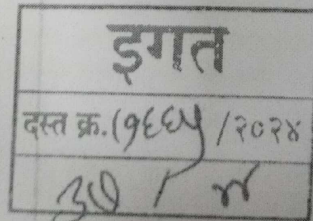 इगत
दस्त क्र.(१६६५/२०२४
३७ / ४४